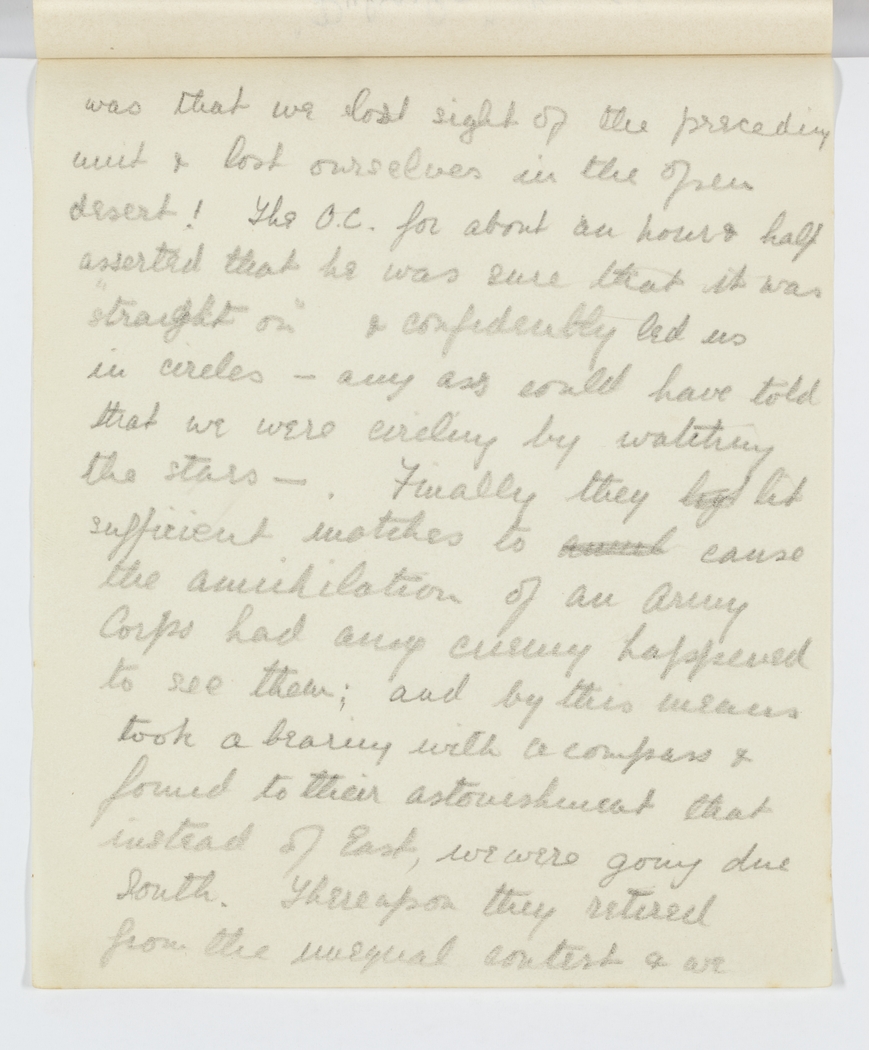 was that we lost sight of the preceding
unit & lost ourselves in the open
desert! The O.C. for about an hour & half
asserted that he was sure that it was
"straight on" & confidently led us
in circles – any ass could have told
that we were circling by watching
the stars – . Finally they lit
sufficient matches to cause
the annihilation of an Army
Corps had any enemy happened
to see them; and by this means
took a bearing with a compass &
found to their astonishment that
instead of East, we were going due
South. Thereupon they retired
from the unequal contest & we